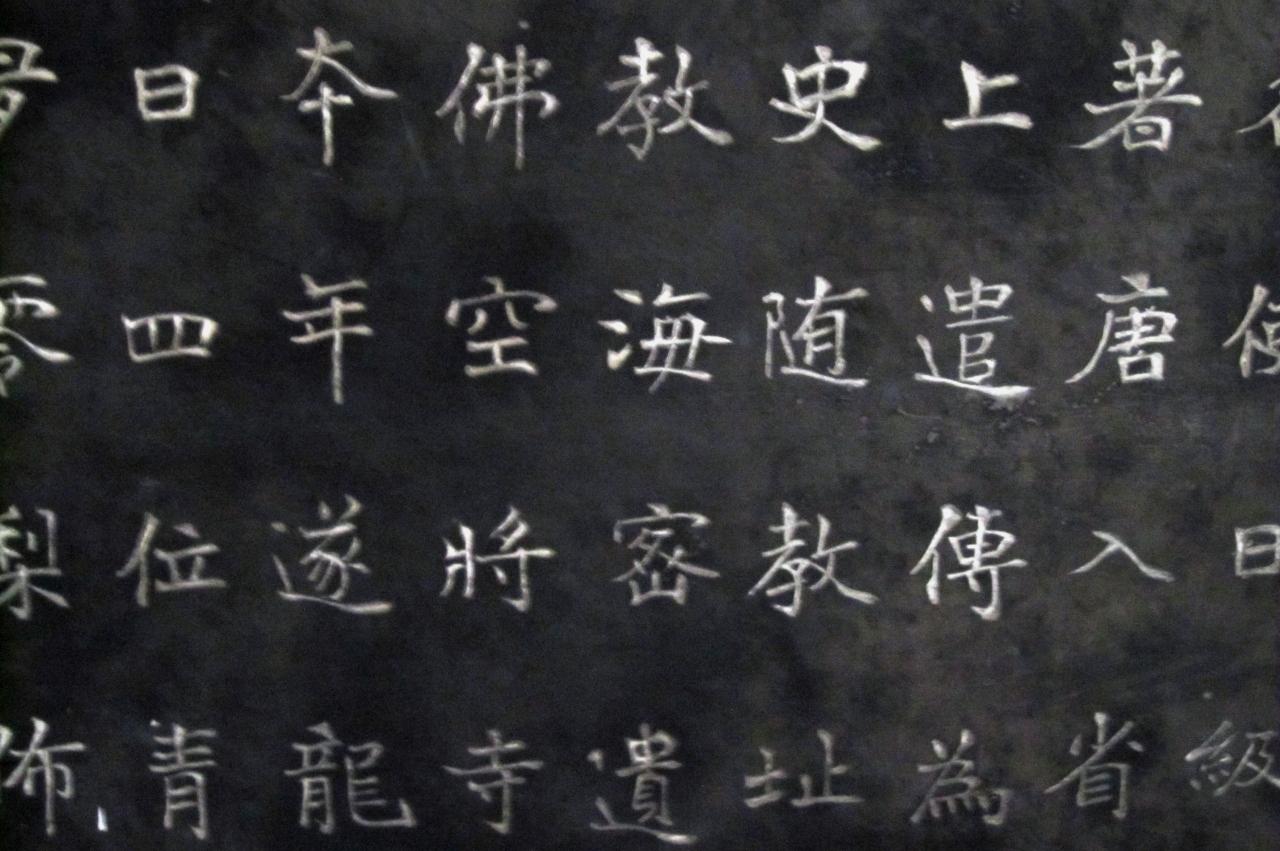 日本佛教史上著
零四年空海随遣唐使
梨位遂將密教傳入日
布青龍寺遺址為省級